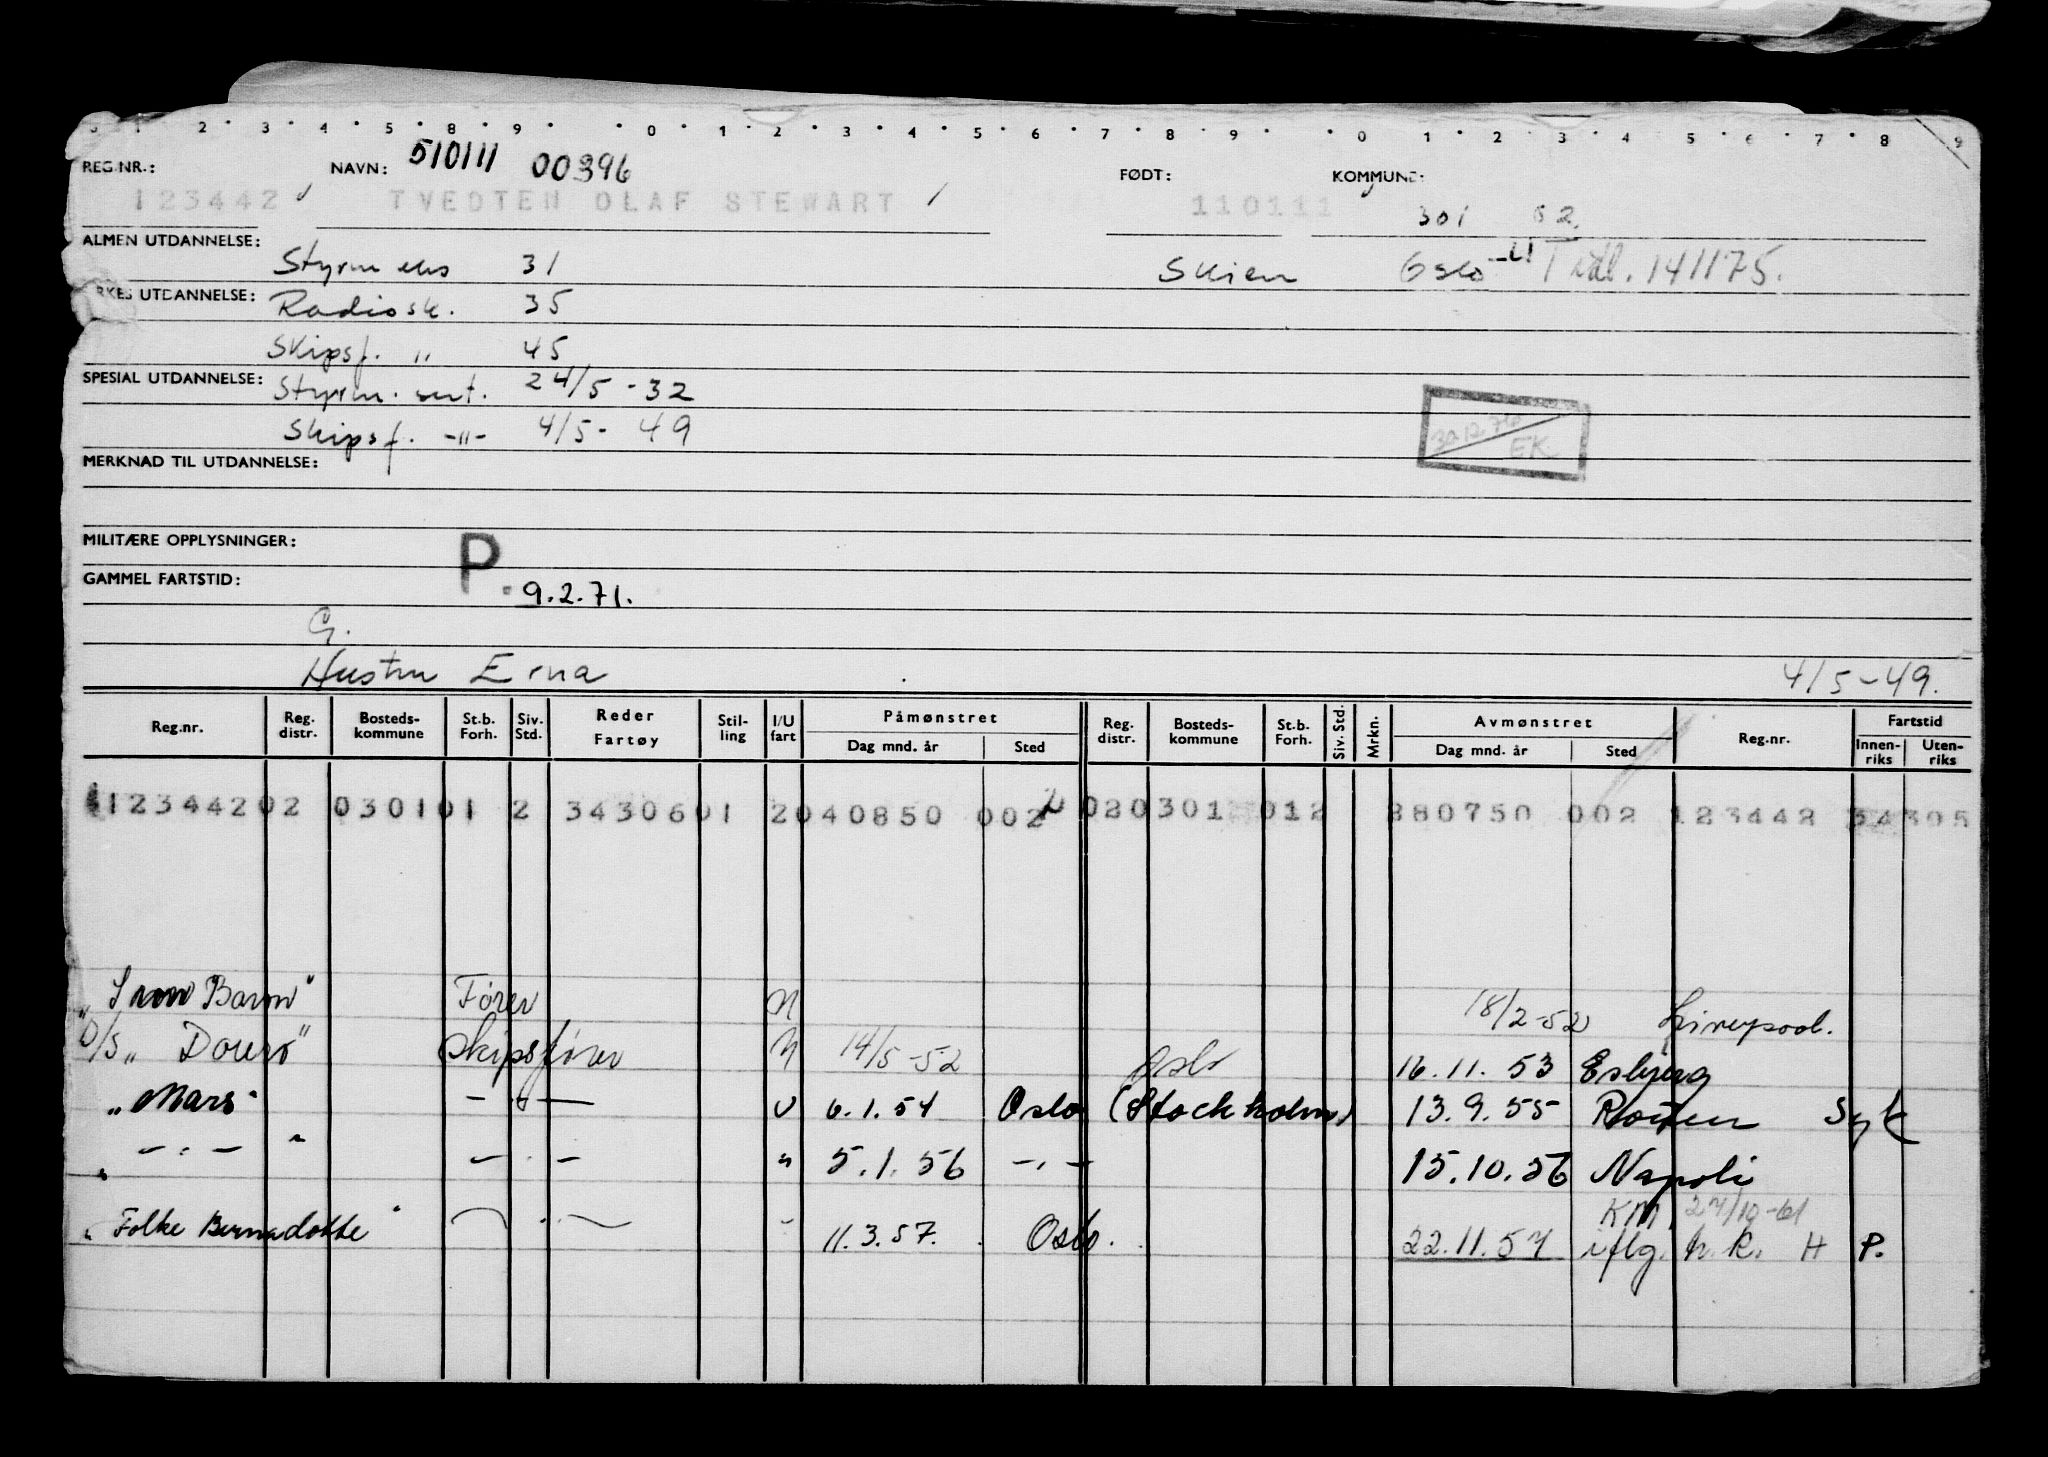 0 1 2 3 4 5 8 9 0 1 2 3 4 5 6 7 8 9 0 1 2 3 4 5 6 7 8 9
REG.NR.: NAVN: 510111 00396 FØDT: KOMMUNE:
123442 TVEDTEN OLAF STEWART 110111 301 62
ALMEN UTDANNELSE: Styrm eks 31 Skien Oslo 141175.
YRKES UTDANNELSE: Radiosk. 35
Skipsf. " 45
SPESIAL UTDANNELSE: Styrm. sert. 24/5-32
Skipsf. -"- 4/5-49
30.12.74 EK
MERKNAD TIL UTDANNELSE:
MILITÆRE OPPLYSNINGER:
GAMMEL FARTSTID: P. 9.2.71.
G.
Hustru Erna 4/5-49.
Reg.nr. Reg. distr. Bosteds-kommune St.b. Forh. Siv. Std. Reder Fartøy Stil-ling I/U fart Påmønstret Dag mnd. år Sted Reg. distr. Bosteds-kommune St.b. Forh. Siv. Std. Mrkn. Avmønstret Dag mnd. år Sted Reg.nr. Fartstid Innen-riks Uten-riks
12344202 030101 2 3430601 2040850 002 020301 012 280750 002 123442 34305
"Iron Baron" Fører U 18/2-52 Liverpool.
D/S "Douro" Skipsfører U 14/5-52 Oslo 16.11.53 Esbjerg
"Mars" -"- U 6.1.54 Oslo (Stockholm) 13.9.55 Rouen Syk
"-.-" -.- " 5.1.56 -.- 15.10.56 Napoli
KM 27/10-61
"Folke Bernadotte" -.- - 11.3.57. Oslo. 22.11.57 iflg. h.k. H P.